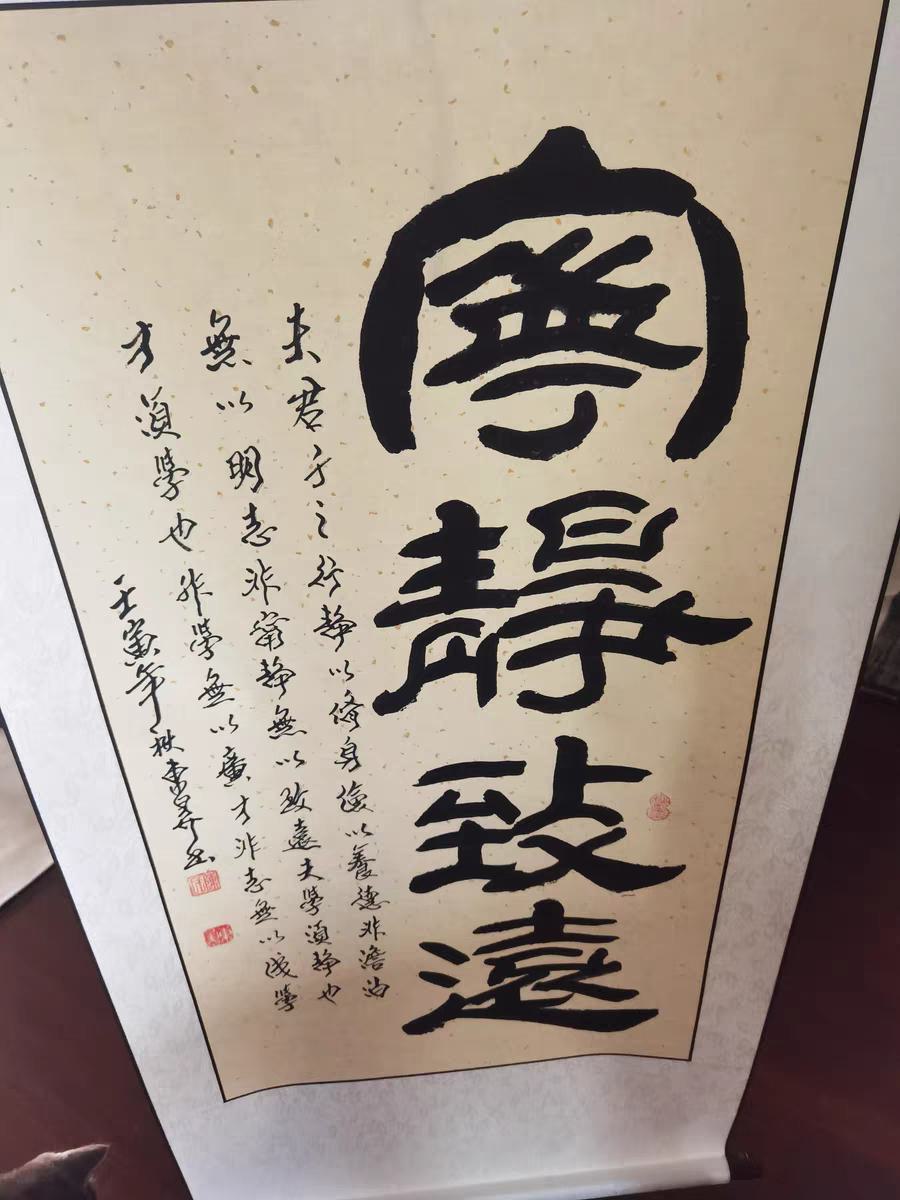 寧靜致遠
夫君子之行静以脩身儉以養德非澹泊
無以明志非甯静無以致遠夫學須静也
才須學也非學無以廣才非志無以成學
壬寅年秋東昇书